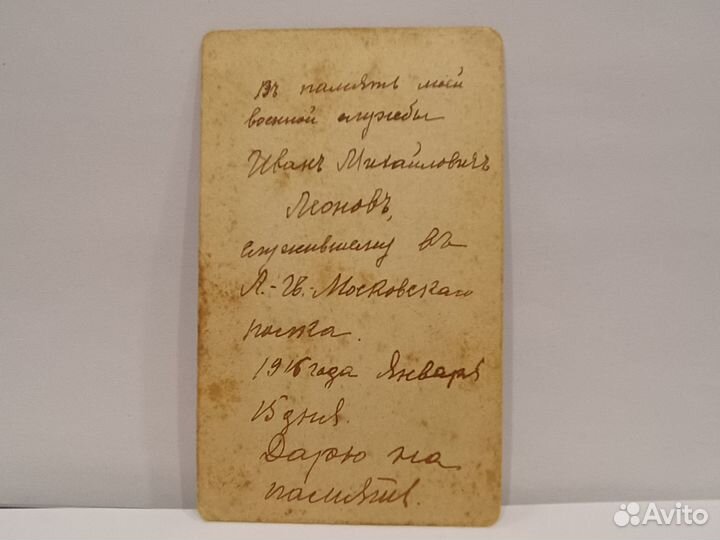 Въ память моей
военной службы
Иванъ Михайловичъ
Леоновъ,
служившему въ
Л.-Гв.-Московскаго
полка.
1916 года Января
15 дня.
Дарю на
память.
Avito